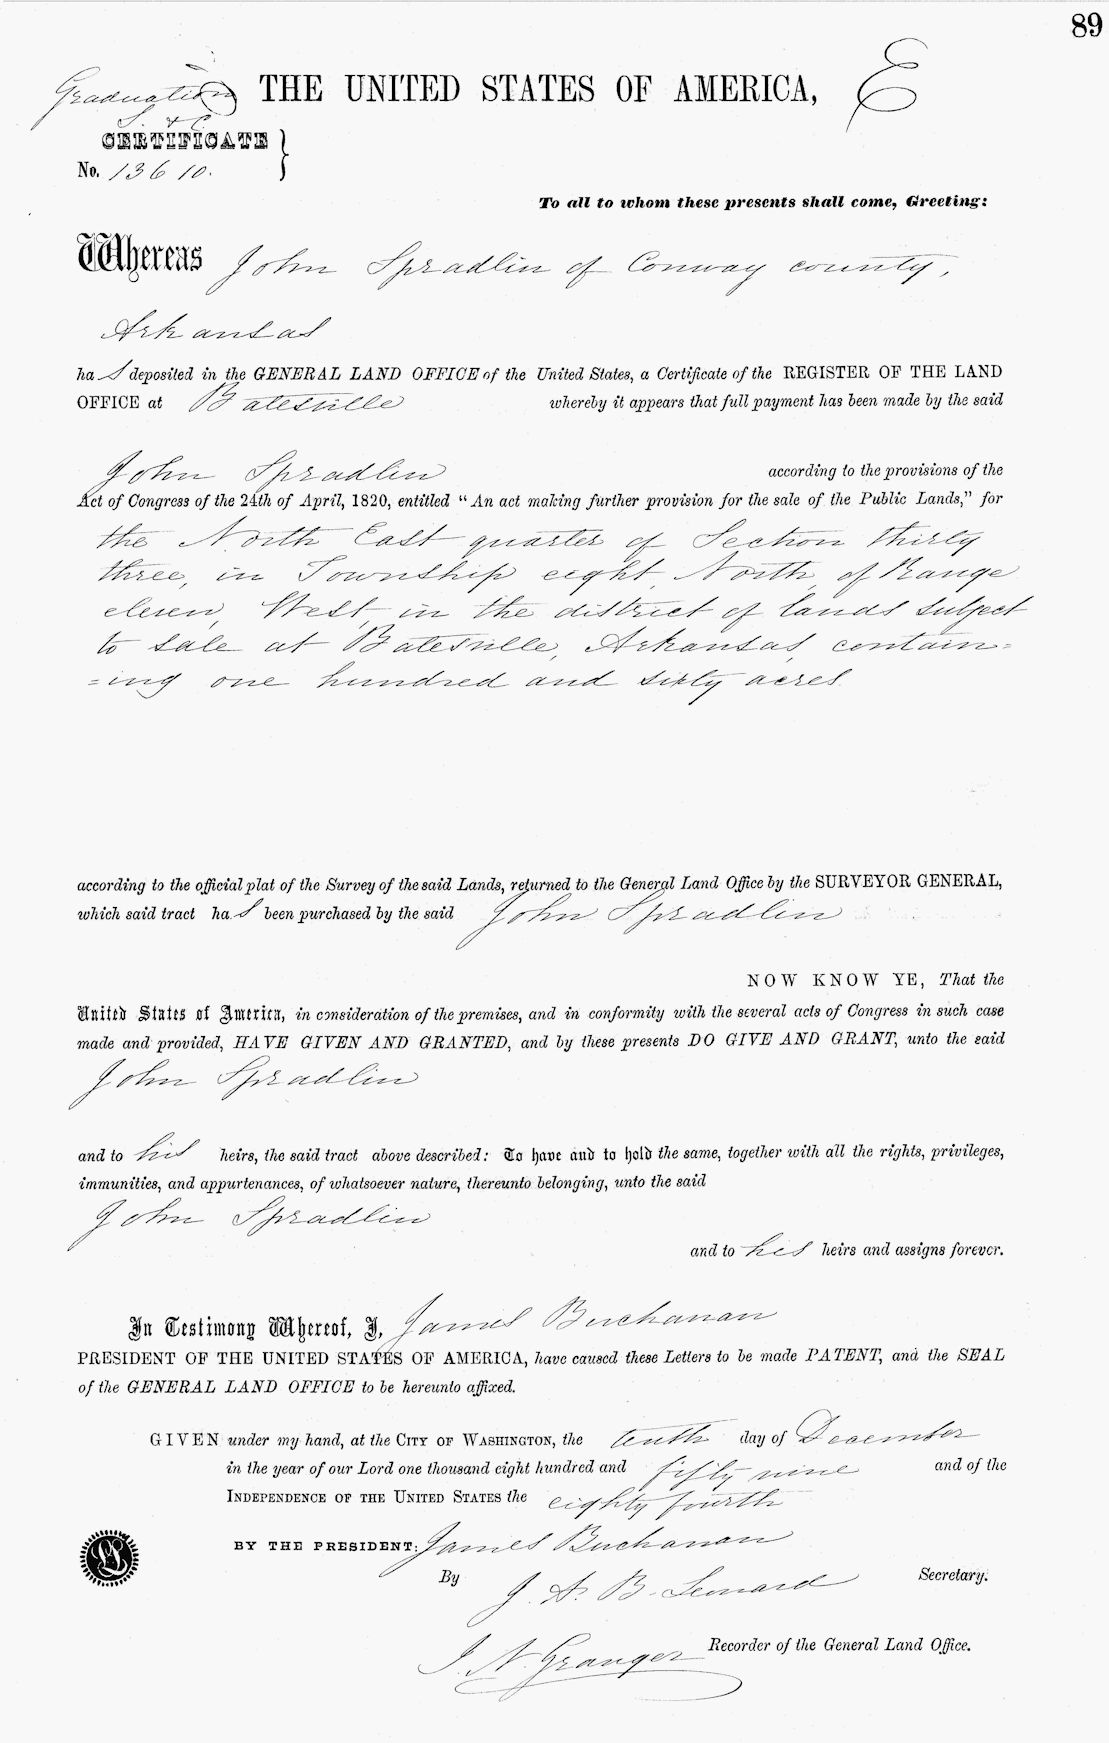 89
Graduation
THE UNITED STATES OF AMERICA,
E
S. & C.
CERTIFICATE
No. 13610.
To all to whom these presents shall come, Greeting:
Whereas John Spradlin of Conway county,
Arkansas
has deposited in the GENERAL LAND OFFICE of the United States, a Certificate of the REGISTER OF THE LAND
OFFICE at Batesville whereby it appears that full payment has been made by the said
John Spradlin according to the provisions of the
Act of Congress of the 24th of April, 1820, entitled "An act making further provision for the sale of the Public Lands," for
the North East quarter of Section thirty
three, in Township eight, North, of Range
eleven, West, in the district of lands subject
to sale at Batesville, Arkansas, contain=
=ing one hundred and sixty acres
according to the official plat of the Survey of the said Lands, returned to the General Land Office by the SURVEYOR GENERAL,
which said tract has been purchased by the said John Spradlin
NOW KNOW YE, That the
United States of America, in consideration of the premises, and in conformity with the several acts of Congress in such case
made and provided, HAVE GIVEN AND GRANTED, and by these presents DO GIVE AND GRANT, unto the said
John Spradlin
and to his heirs, the said tract above described: To have and to hold the same, together with all the rights, privileges,
immunities, and appurtenances, of whatsoever nature, thereunto belonging, unto the said
John Spradlin
and to his heirs and assigns forever.
In Testimony Whereof, I, James Buchanan
PRESIDENT OF THE UNITED STATES OF AMERICA, have caused these Letters to be made PATENT, and the SEAL
of the GENERAL LAND OFFICE to be hereunto affixed.
GIVEN under my hand, at the CITY OF WASHINGTON, the tenth day of December
in the year of our Lord one thousand eight hundred and fifty nine and of the
INDEPENDENCE OF THE UNITED STATES the eighty fourth
BY THE PRESIDENT: James Buchanan
By J. A. B. Leonard Secretary.
J. N. Granger Recorder of the General Land Office.